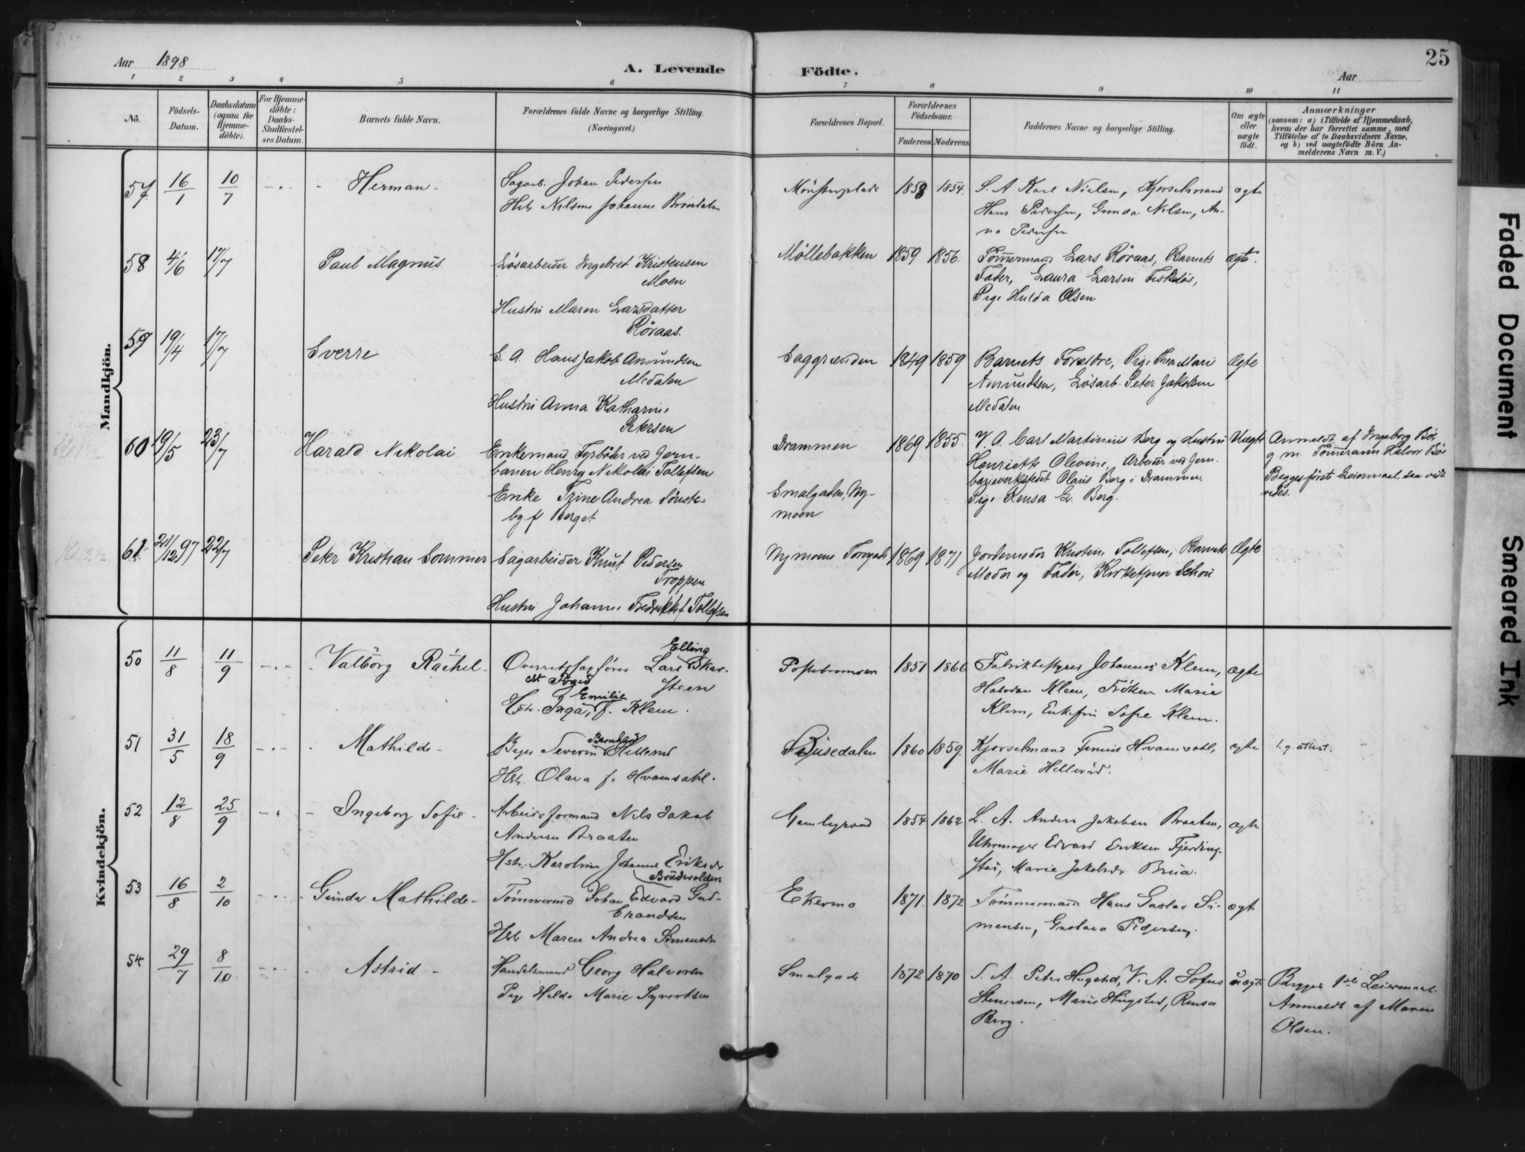 Aar 1898
A. Levende Födte.
Aar
25
1 2 3 4 5 6 7 8 9 10 11
No.
Födsels-
Datum.
Daabsdatum
(ogsaa for
Hjemme-
döbte).
For Hjemme-
döbte:
Daabs-
Stadfæstel-
ses Datum.
Barnets fulde Navn.
Forældrenes fulde Navne og borgerlige Stilling.
(Næringsvei.)
Forældrenes Bopæl.
Forældrenes
Födselsaar.
Faderens
Moderens
Faddernes Navne og borgerlige Stilling.
Om ægte
eller
uægte
födt.
Anmærkninger
(saasom: a) i Tilfælde af Hjemmedaab,
hvem der har forrettet samme, med
Tilföielse af to Daabsvidners Navne,
og b) ved uægtefödte Börn An-
melderens Navn m. V.)
Mandkjön.
57 16/1 10/7 Herman
Sagarb. Johan Pedersen
Johanne
1858 1854.
S. A. Karl Nielsen, Kjørselmand
Hans Pedersen, Gunda Nilsen, An-
na Pedersen
ægte
58 4/6 17/7 Paul Magnus
Løsarbeider Ingebret Kristensen
Moen
Hustru Maren Larsdatter
Røraas.
Møllebakken 1859 1856.
Tømmermand Lars Røraas, Barnets
Fader, Laura Larsen
Pige Hulda Olsen
Ægte.
59 19/4 17/7 Sverre
S. A. Hans Jakob Amundsen
Medalen
Hustru Anna Katharine
Petersen
1849 1859
Barnets Forældre, Pige
Amundsen, Løsarb. Peter Jakobsen
Medalen
Ægte
60 19/5 23/7 Harald Nikolai
Enkemand Fyrbøder ved Jern-
banen Henry Nikolai Tollefsen
Enke Trine Andrea Tønses-
berget
Drammen
Smalgaden, Ny-
moen
1869 1855.
V. A. Carl Martinius Berg og Hustru
Henriette Olevine, Arbeider ved Jern-
baneverkstedet Olaus Berg i Drammen
Pige Rensa L. Berg.
Uægte
Anmeldt af Ingeborg Bøe
g. m. Tømmermand Halvor Bøe
Begges første Leiermaal, saa vidt
vides.
61. 21/12 97 22/7 Peter Kristian Sommer
Sagarbeider Knut Pedersen
Troppen
Hustru Johanne Fredrikke f. Tollefsen
Nymoens Torvgade 1869 1871
Jordmoder Kristine Tollefsen, Barnets
Moder og Fader, Kirketjener Schøu
Ægte
Kvindekjön.
50 11/8 11/9 Valborg Rachel
Overretssagfører Lars Elling Skar-
steen
Hstr. Inga Emilie f. Klem.
1851 1866
Fabrikbestyrer Johannes Klem,
Halvdan Klem, Frøken Marie
Klem, Enkefru Sofie Klem.
ægte
51 31/5 18/9 Mathilde
Severin Bernhard Hillerud
Hstr. Olava f. Hvamsahl.
1860 1859.
Kjørselmand Hvamsahl,
Marie Hillerud.
ægte
52 12/8 25/9 Ingeborg Sofie
Arbeidsformand Nils Jakob
Andersen Braaten
Hstr. Karoline Johanne Eriksdr
Gamlegrænd 1854 1862
L. A. Anders Jakobsen Braaten,
Uhrmager Edvard Eriksen Fjerding-
stad, Marie Jakobsdr Brua.
ægte
53 16/8 2/10 Gunda Mathilde
Tømmermd Johan Edvard Gud-
brandsen
Hstr. Maren Andrea Simensen
Ekermo 1871. 1872
Tømmermand Hans Gustav Si-
mensen, Gustava Pedersen.
ægt.
54 29/7 8/10 Astrid
Handelsmand Georg Halvorsen
Pige Hilda Marie Syvertsen
Smalgade 1872 1870
S. A. Peter Hugsted, V. A. Sofus
Stenersen, Marie Hugsted, Rensa
Berg.
uægte
Begges 1ste Leiermaal.
Anmeldt af Maren
Olsen.
Faded Document
Smeared Ink